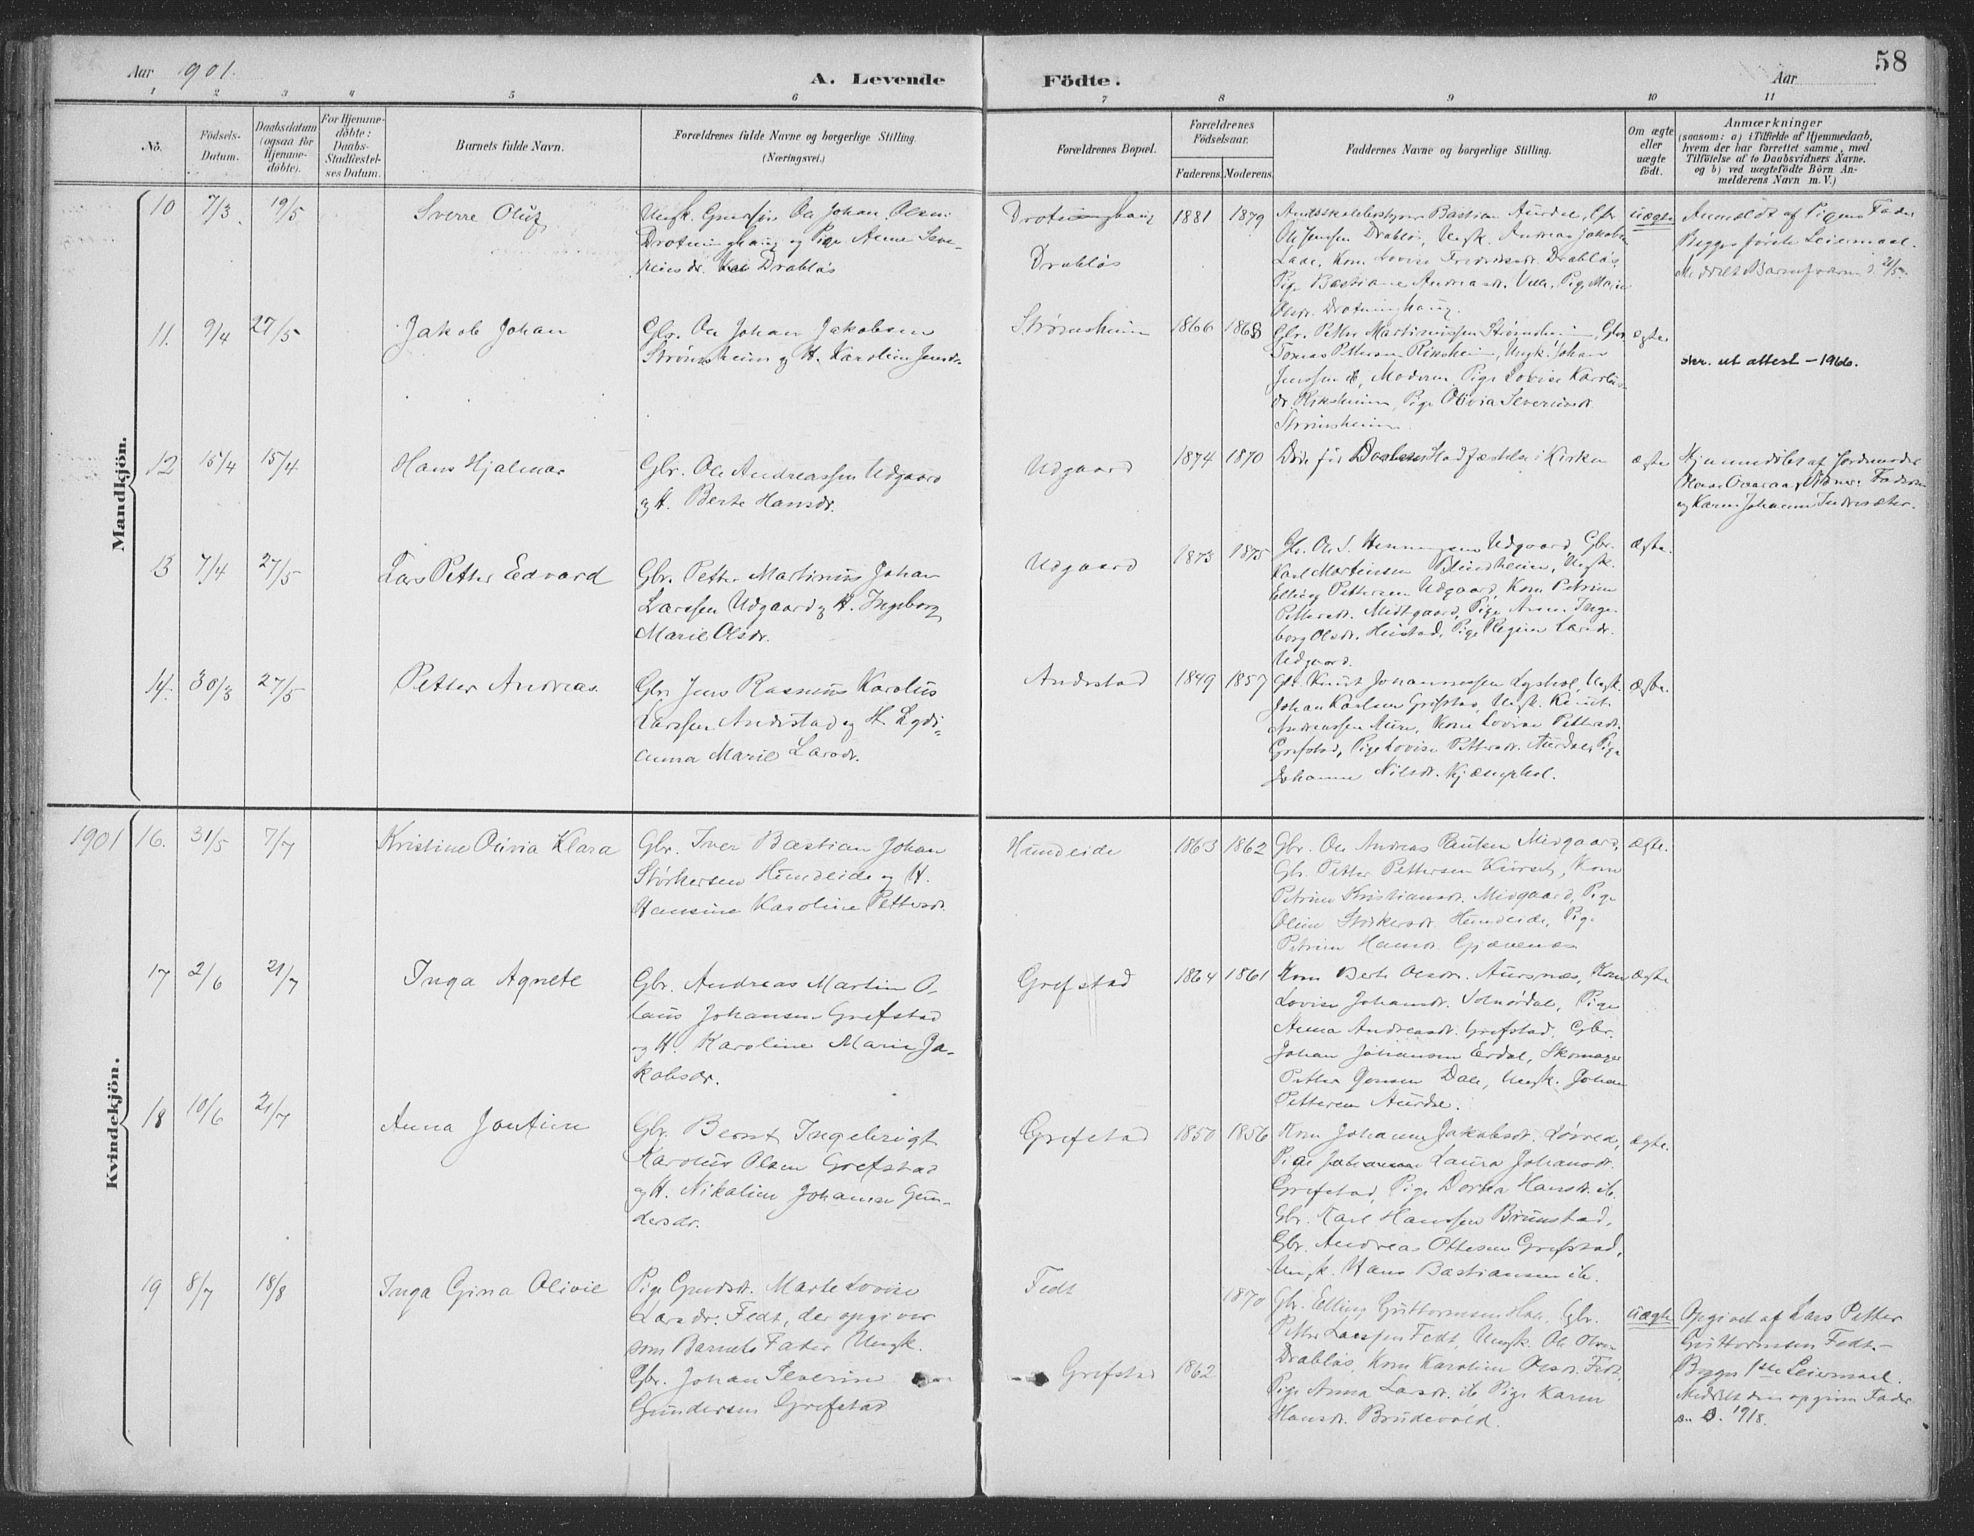 58
Aar 1901.
A. Levende
Födte.
Aar
1 2 3 4 5 6 7 8 9 10 11
No.
Födsels-
Datum.
Daabsdatum
(ogsaa for
Hjemme-
döbte).
For Hjemme-
döbte:
Daabs-
Stadfæstel-
ses Datum.
Barnets fulde Navn.
Forældrenes fulde Navne og borgerlige Stilling.
(Næringsvei.)
Forældrenes Bopæl.
Forældrenes
Födselsaar.
Faderens. Moderens.
Faddernes Navne og borgerlige Stilling.
Om ægte
eller
uægte
födt.
Anmærkninger
(saasom: a) i Tilfælde af Hjemmedaab,
hvem der har forrettet samme, med
Tilföielse af to Daabsvidners Navne.
og b) ved uægtefödte Börn An-
melderens Navn m. V.)
Mandkjön.
10 7/3 19/5
Sverre Oluf
Ungk. Ole Johan Olsen
Drotninghaug og Pige Anne Seve-
rinsdr. Drabløs
Drotninghaug
Drabløs
1881 1879
Bastian Aurdal, Gbr.
Ole Jensen Drabløs, Ungk. Andreas Jakobsen
Drabløs,
Pige Bastiane Andreasdr. Pige Marie
Olsdr. Drotninghaug.
uægte
Anmeldt af Pigens Fader
Begges første Leiermaal.
11. 9/4 27/5
Jakob Johan
Gbr. Ole Johan Jakobsen
Strømsheim og H. Karoline Jensdr.
Strømsheim
1866 1868
Gbr. Petter Martinussen Strømsheim, Gbr.
Tomas Pettersen Riksheim, Ungk. Johan
Jenssen ib, Moderen, Pige Lovise Karolus-
dr. Riksheim, Pige Olivia Severinsdr.
Strømsheim.
ægte
skr. ut attest – 1966.
12 15/4 15/4
Hans Hjalmar
Gbr. Ole Andreassen Udgaard
og H. Berte Hansdr.
Udgaard
1874 1870
Døde før Daaben Stadfæstedes i Kirken
ægte
Hjemmedøbt af Jordmoder
og Karen Johanne
13 7/4 27/5
Lars Petter Edvard
Gbr. Petter Martinus Johan
Larssen Udgaard og H. Ingeborg
Marie Olsdr.
Udgaard
1873 1875
Gbr. Ole S. Henningsen Udgaard, Gbr.
Karl Martinsen Blindheim, Ungk.
Elling Pettersen Udgaard, Kone Petrine
Pettersdr. Midtgaard, Pige Anne Inge-
borg Olsdr. Pige Regine Larsdr.
Udgaard.
ægte.
14. 30/3 27/5
Petter Andreas.
Gbr. Jens Rasmus Karolus
Larssen Andestad og H. Lydi-
anna Marie Larsdr.
Andestad
1849 1857
Gbr. Knut Johannessen Lyshol, Ungk.
Johan Karlsen Grefstad, Ungk. Knut
Andreassen Aure, Kone Lovise Pettersdr.
Grefstad, Pige Lovise Pettersdr. Aurdal, Pige
Johanne Nilsdr. Kjæmphol.
ægte.
Kvindekjön.
1901 16. 31/5 7/7
Kristine Olivia Klara
Gbr. Iver Bastian Johan
Størkersen Hundeide og H.
Hansine Karoline Pettersdr.
Hundeide
1863 1862
Gbr. Ole Andreas Paulsen Midgaard,
Gbr. Petter Pettersen Kurset, Kone
Petrine Kristiansdr. Midgaard, Pige
Oline Størkersdr. Hundeide, Pige
Petrine Hansdr. Gjævenes
ægte.
17 2/6 21/7
Inga Agnete
Gbr. Andreas Martin O-
laus Johansen Grefstad
og H. Karoline Marie Ja-
kobsdr.
Grefstad
1864 1861
Kone Berte Olsdr. Aursnes, Kone
Lovise Johansdr. Solnørdal, Pige
Anna Andreasdr. Grefstad, Gbr.
Johan Johansen Erdal, Skomager
Petter Jonsen Dale, Ungk. Johan
Petteren Aurdal.
ægte
18 10/6 21/7
Anna Jontine
Gbr. Bernt Ingebrigt
Karolus Olsen Grefstad
og H. Nikoline Johanne Gun-
dersdr.
Grefstad
1850 1856
Kone Johanne Jakobsdr. Løvold,
Pige Laura Johansdr.
Grefstad, Pige Dortea Hansdr. ib.
Gbr. Karl Hanssen Brunstad,
Gbr. Andreas Ottesen Grefstad,
Ungk. Hans Bastiansen ib.
ægte.
19 8/7 18/8
Inga Gina Olivie
Pige Marte Lovise
Larsdr. Fedt, der opgiver
som Barnets Fader Ungk.
Gbr. Johan Severin
Gundersen Grefstad
Fedt
Grefstad
1870
1862
Gbr. Elling Guttormsen Hole, Gbr.
Petter Larssen Fedt, Ungk. Ole Olsen
Drabløs, Kone Karoline Olsdr. Fedt,
Pige Anna Larsdr. ib Pige Karen
Hansdr. Brudevold.
uægte
Opgivet af Lars Petter
Guttormsen Fedt.
Begges 1ste Leiermaal.
Meddelt den opgivne Fader
1918.